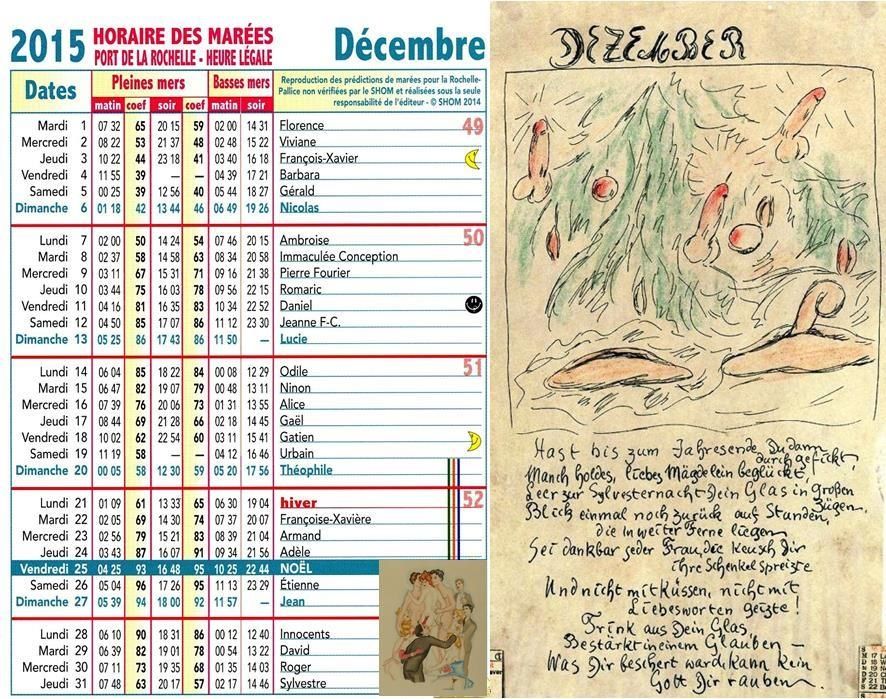 2015 HORAIRE DES MARÉES
PORT DE LA ROCHELLE - HEURE LÉGALE
Décembre
Dates Pleines mers Basses mers
matin coef soir coef matin soir
Reproduction des prédictions de marées pour la Rochelle-
Pallice non vérifiées par le SHOM et réalisées sous la seule
responsabilité de l'éditeur - © SHOM 2014
Mardi 1 07 32 65 20 15 59 02 00 14 31 Florence 49
Mercredi 2 08 22 53 21 37 48 02 48 15 22 Viviane
Jeudi 3 10 22 44 23 18 41 03 40 16 18 François-Xavier
Vendredi 4 11 55 39 — — 04 39 17 21 Barbara
Samedi 5 00 25 39 12 56 40 05 44 18 27 Gérald
Dimanche 6 01 18 42 13 44 46 06 49 19 26 Nicolas
Lundi 7 02 00 50 14 24 54 07 46 20 15 Ambroise 50
Mardi 8 02 37 58 14 58 63 08 34 20 58 Immaculée Conception
Mercredi 9 03 11 67 15 31 71 09 16 21 38 Pierre Fourier
Jeudi 10 03 44 75 16 03 78 09 56 22 15 Romaric
Vendredi 11 04 16 81 16 35 83 10 34 22 52 Daniel
Samedi 12 04 50 85 17 07 86 11 12 23 30 Jeanne F-C.
Dimanche 13 05 25 86 17 43 86 11 50 — Lucie
Lundi 14 06 04 85 18 22 84 00 08 12 29 Odile 51
Mardi 15 06 47 82 19 07 79 00 48 13 11 Ninon
Mercredi 16 07 39 76 20 06 73 01 31 13 55 Alice
Jeudi 17 08 44 69 21 28 66 02 18 14 45 Gaël
Vendredi 18 10 02 62 22 54 60 03 11 15 41 Gatien
Samedi 19 11 19 58 — — 04 12 16 46 Urbain
Dimanche 20 00 05 58 12 30 59 05 20 17 56 Théophile
Lundi 21 01 09 61 13 33 65 06 30 19 04 hiver 52
Mardi 22 02 05 69 14 30 74 07 37 20 07 Françoise-Xavière
Mercredi 23 02 56 79 15 21 83 08 39 21 04 Armand
Jeudi 24 03 43 87 16 07 91 09 34 21 56 Adèle
Vendredi 25 04 25 93 16 48 95 10 25 22 44 NOËL
Samedi 26 05 04 96 17 26 95 11 13 23 29 Étienne
Dimanche 27 05 39 94 18 00 92 11 57 — Jean
Lundi 28 06 10 90 18 31 86 00 12 12 40 Innocents
Mardi 29 06 39 82 19 01 78 00 54 13 22 David
Mercredi 30 07 11 73 19 35 68 01 35 14 03 Roger
Jeudi 31 07 48 63 20 17 57 02 17 14 46 Sylvestre
DEZEMBER
Hast bis zum Jahresende Du dann
durchgefickt,
Manch holdes, liebes Mägdelein beglückt,
Leer zur Sylvesternacht Dein Glas in großen
Zügen,
Blick einmal noch zurück auf Stunden,
die in weiter Ferne liegen
Sei dankbar jeder Frau, die keusch Dir
ihre Schenkel spreizte
Und nicht mit Küssen, nicht mit
Liebesworten geizte!
Trink aus Dein Glas,
Bestärkt in einem Glauben —
Was Dir beschert ward, kann kein
Gott Dir rauben.